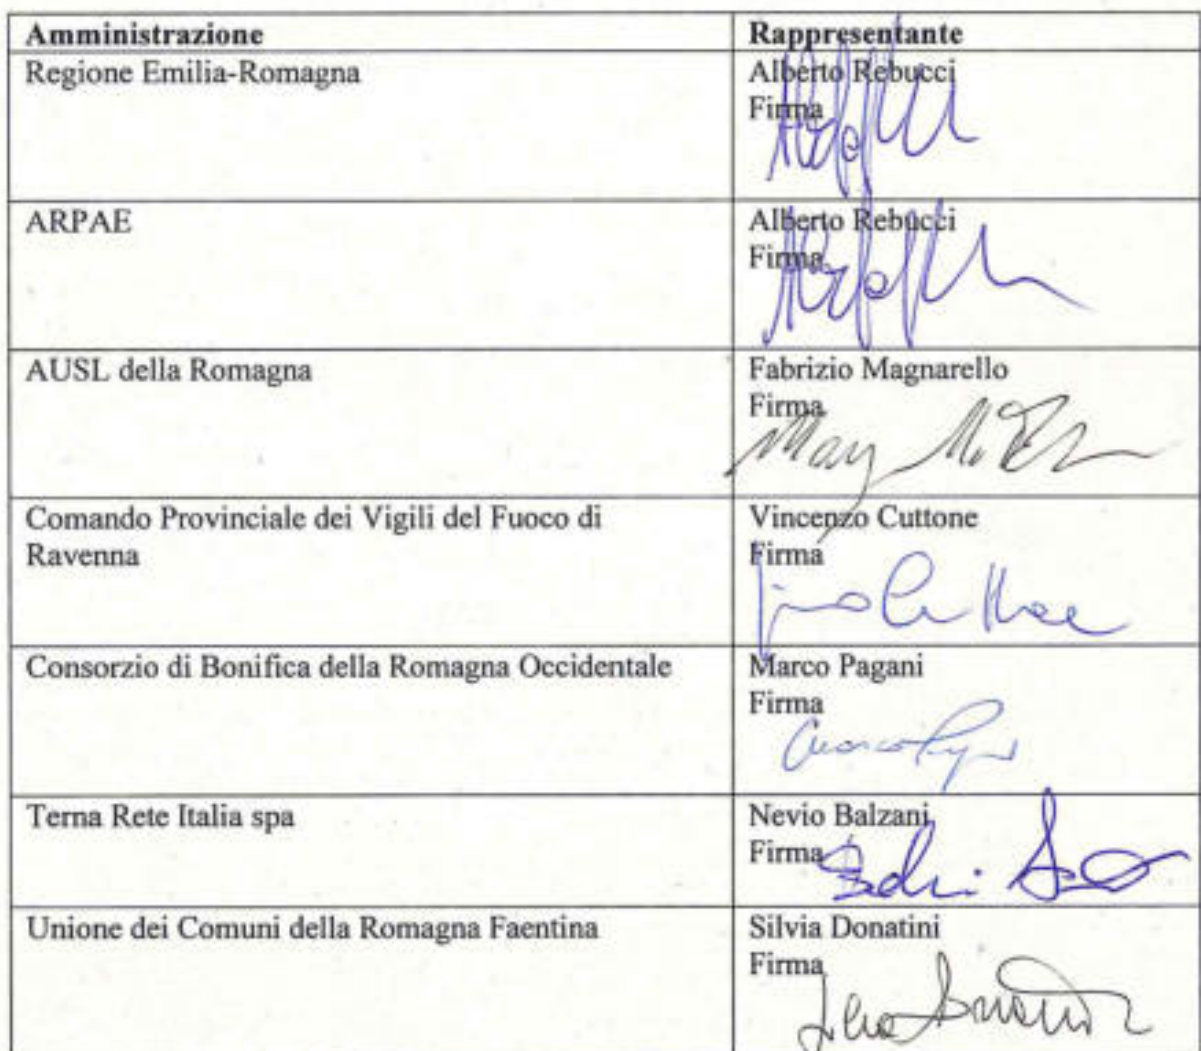 Amministrazione
Rappresentante
Regione Emilia-Romagna
Alberto Rebucci
Firma
ARPAE
Alberto Rebucci
Firma
AUSL della Romagna
Fabrizio Magnarello
Firma
Comando Provinciale dei Vigili del Fuoco di
Ravenna
Vincenzo Cuttone
Firma
Consorzio di Bonifica della Romagna Occidentale
Marco Pagani
Firma
Terna Rete Italia spa
Nevio Balzani
Firma
Unione dei Comuni della Romagna Faentina
Silvia Donatini
Firma